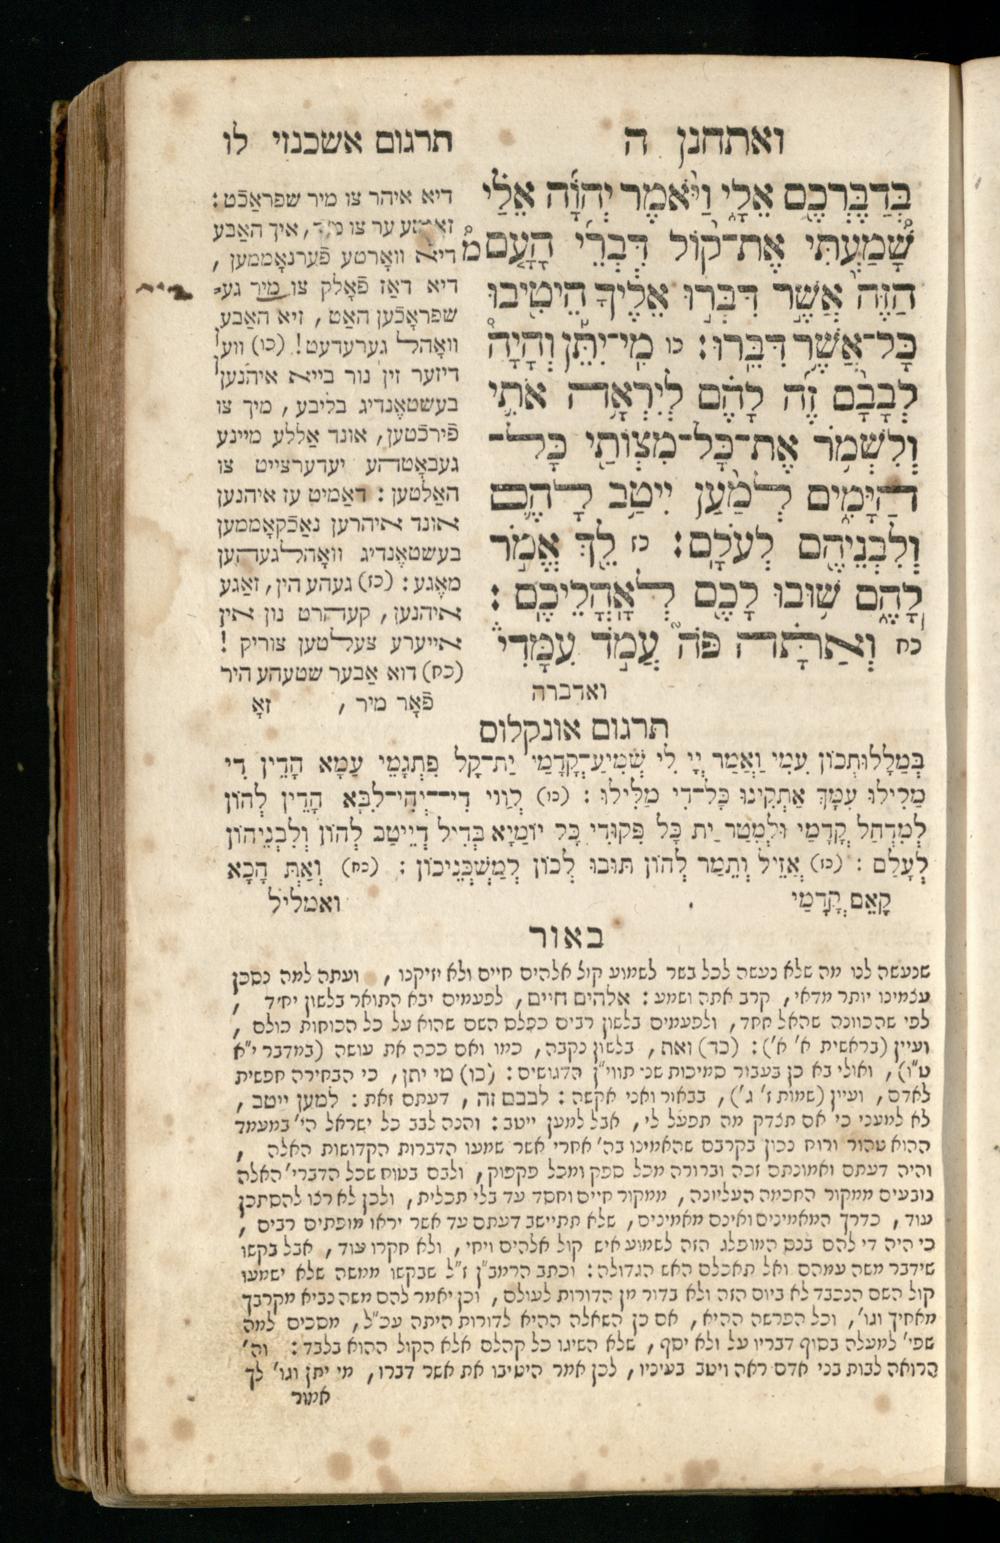 ואתחנן ה
תרגום אשכנזי לו
בְּדַבֶּרְכֶם אֵלָי וַיֹּאמֶר יְהוָֹה אֵלַי
שָׁמַעְתִּי אֶת־קוֹל דִּבְרֵי הָעָם
הַזֶּה אֲשֶׁר דִּבְּרוּ אֵלֶיךָ הֵיטִיבוּ
כָּל־אֲשֶׁר דִּבֵּרוּ׃ כו מִי־יִתֵּן וְהָיָה
לְבָבָם זֶה לָהֶם לְיִרְאָה אֹתִי
וְלִשְׁמֹר אֶת־כָּל־מִצְוֹתַי כָּל־
הַיָּמִים לְמַעַן יִיטַב לָהֶם
וְלִבְנֵיהֶם לְעֹלָם׃ כז לֵךְ אֱמֹר
לָהֶם שׁוּבוּ לָכֶם לְאָהֳלֵיכֶם׃
כח וְאַתָּה פֹּה עֲמֹד עִמָּדִי
ואדברה
דיא איהר צו מיר שפראַכֿט :
ער צו איך האַבע
דיא וואָרטע פֿערנאָממען ,
דיא דאז פֿאָלק צו מיר גע⸗
שפראָכֿען האט , זיא האַבע
וואָהל גערעדעט! (כו) ווע
דיזער זין נור בייא איהנען
בעשטאֶנדיג בליבע, מיך צו
פֿירכֿטען, אונד אַללע מיינע
געבאָטהע יעדערצייט צו
האַלטען : דאַמיט עז איהנען
אונד איהרען נאַכֿקאָממען
בעשטאֶנדיג וואָהלגעהען
מאֶגע : (כז) געהע הין, זאַגע
איהנען, קעהרט נון אין
אייערע צעלטען צוריק !
(כח) דוא אַבער שטעהע היר
פֿאָר מיר , זאָ
תרגום אונקלוס
בְּמַלָּלוּתְכוֹן עִמִי וַאֲמַר יְיָ לִי שְׁמִיעַ־קֳדָמַי יַת־קָל פִּתְגָמֵי עַמָּא הָדֵין דִי
מַלִילוּ עִמָּךְ אַתְקִינוּ כָּל־דִי מַלִּילוּ : (כו) לְוֵוי דִי־יְהֵי־לִבָּא הָדֵין לְהוֹן
לְמִדְחַל קֳדָמַי וּלְמִטַר יַת כָּל פִּקוּדַי כָּל יוֹמַיָא בְּדִיל דְיֵיטַב לְהוֹן וְלִבְנֵיהוֹן
לְעָלַם : (כז) אֲזֵיל וְתֵמַר לְהוֹן תּוּבוּ לְכוֹן לְמַשְׁכְּנֵיכוֹן : (כח) וְאַתְּ הָכָא
קָאֵם קֳדָמַי ואמליל
באור
שנעשה לנו מה שלא נעשה לכל בשר לשמוע קול אלהים חיים ולא יזיקנו , ועתה למה נסכן
עצמינו יותר מדאי, קרב אתה ושמע : אלהים חיים, לפעמים יבא התואר בלשון יחיד ,
לפי שהכוונה שהאל אחד, ולפעמים בלשון רבים כפלס השם שהוא על כל הכוחות כולם ,
ועיין (בראשית א' א') : (כד) ואת, בלשון נקבה, כמו ואם ככה את עושה (במדבר י"א
ט"ו), ואולי בא כן בעבור סמיכות שני תווי"ן הדגושים : (כו) מי יתן, כי הבחירה חפשית
לאדם, ועיין (שמות ז' ג'), בבאור ואני אקשה : לבבם זה , דעתם זאת : למען ייטב ,
לא למעני כי אם תצדק מה תפעל לי, אבל למען ייטב : והנה לבב כל ישראל הי' במעמד
ההוא טהור ורוח נכון בקרבם שהאמינו בה' אחרי אשר שמעו הדברות הקדושות האלה ,
והיה דעתם ואמונתם זכה וברורה מכל ספק ומכל פקפוק, ולבם בטוח שכל הדברי' האלה
נובעים ממקור החכמה העליונה, ממקור חיים וחסד עד בלי תכלית, ולכן לא רצו להסתכן
עוד, כדרך המאמינים ואינם מאמינים, שלא תתיישב דעתם עד אשר יראו מופתים רבים ,
כי היה די להם בנס המופלג הזה לשמוע איש קול אלהים ויחי, ולא חקרו עוד, אבל בקשו
שידבר משה עמהם ואל תאכלם האש הגדולה : וכתב הרמב"ן ז"ל שבקשו ממשה שלא ישמעו
קול השם הנכבד לא ביום הזה ולא בדור מן הדורות לעולם, וכן יאמר להם משה נביא מקרבך
מאחיך וגו', וכל הפרשה ההיא, אם כן השאלה ההיא לדורות היתה עכ"ל, מסכים למה
שפי' למעלה בסוף דבריו על ולא יסף, שלא השיגו כל קהלם אלא הקול ההוא בלבד : וה'
הרואה לבות בני אדם ראה ויטב בעיניו, לכן אמר היטיבו את אשר דברו, מי יתן וגו' לך
אמור